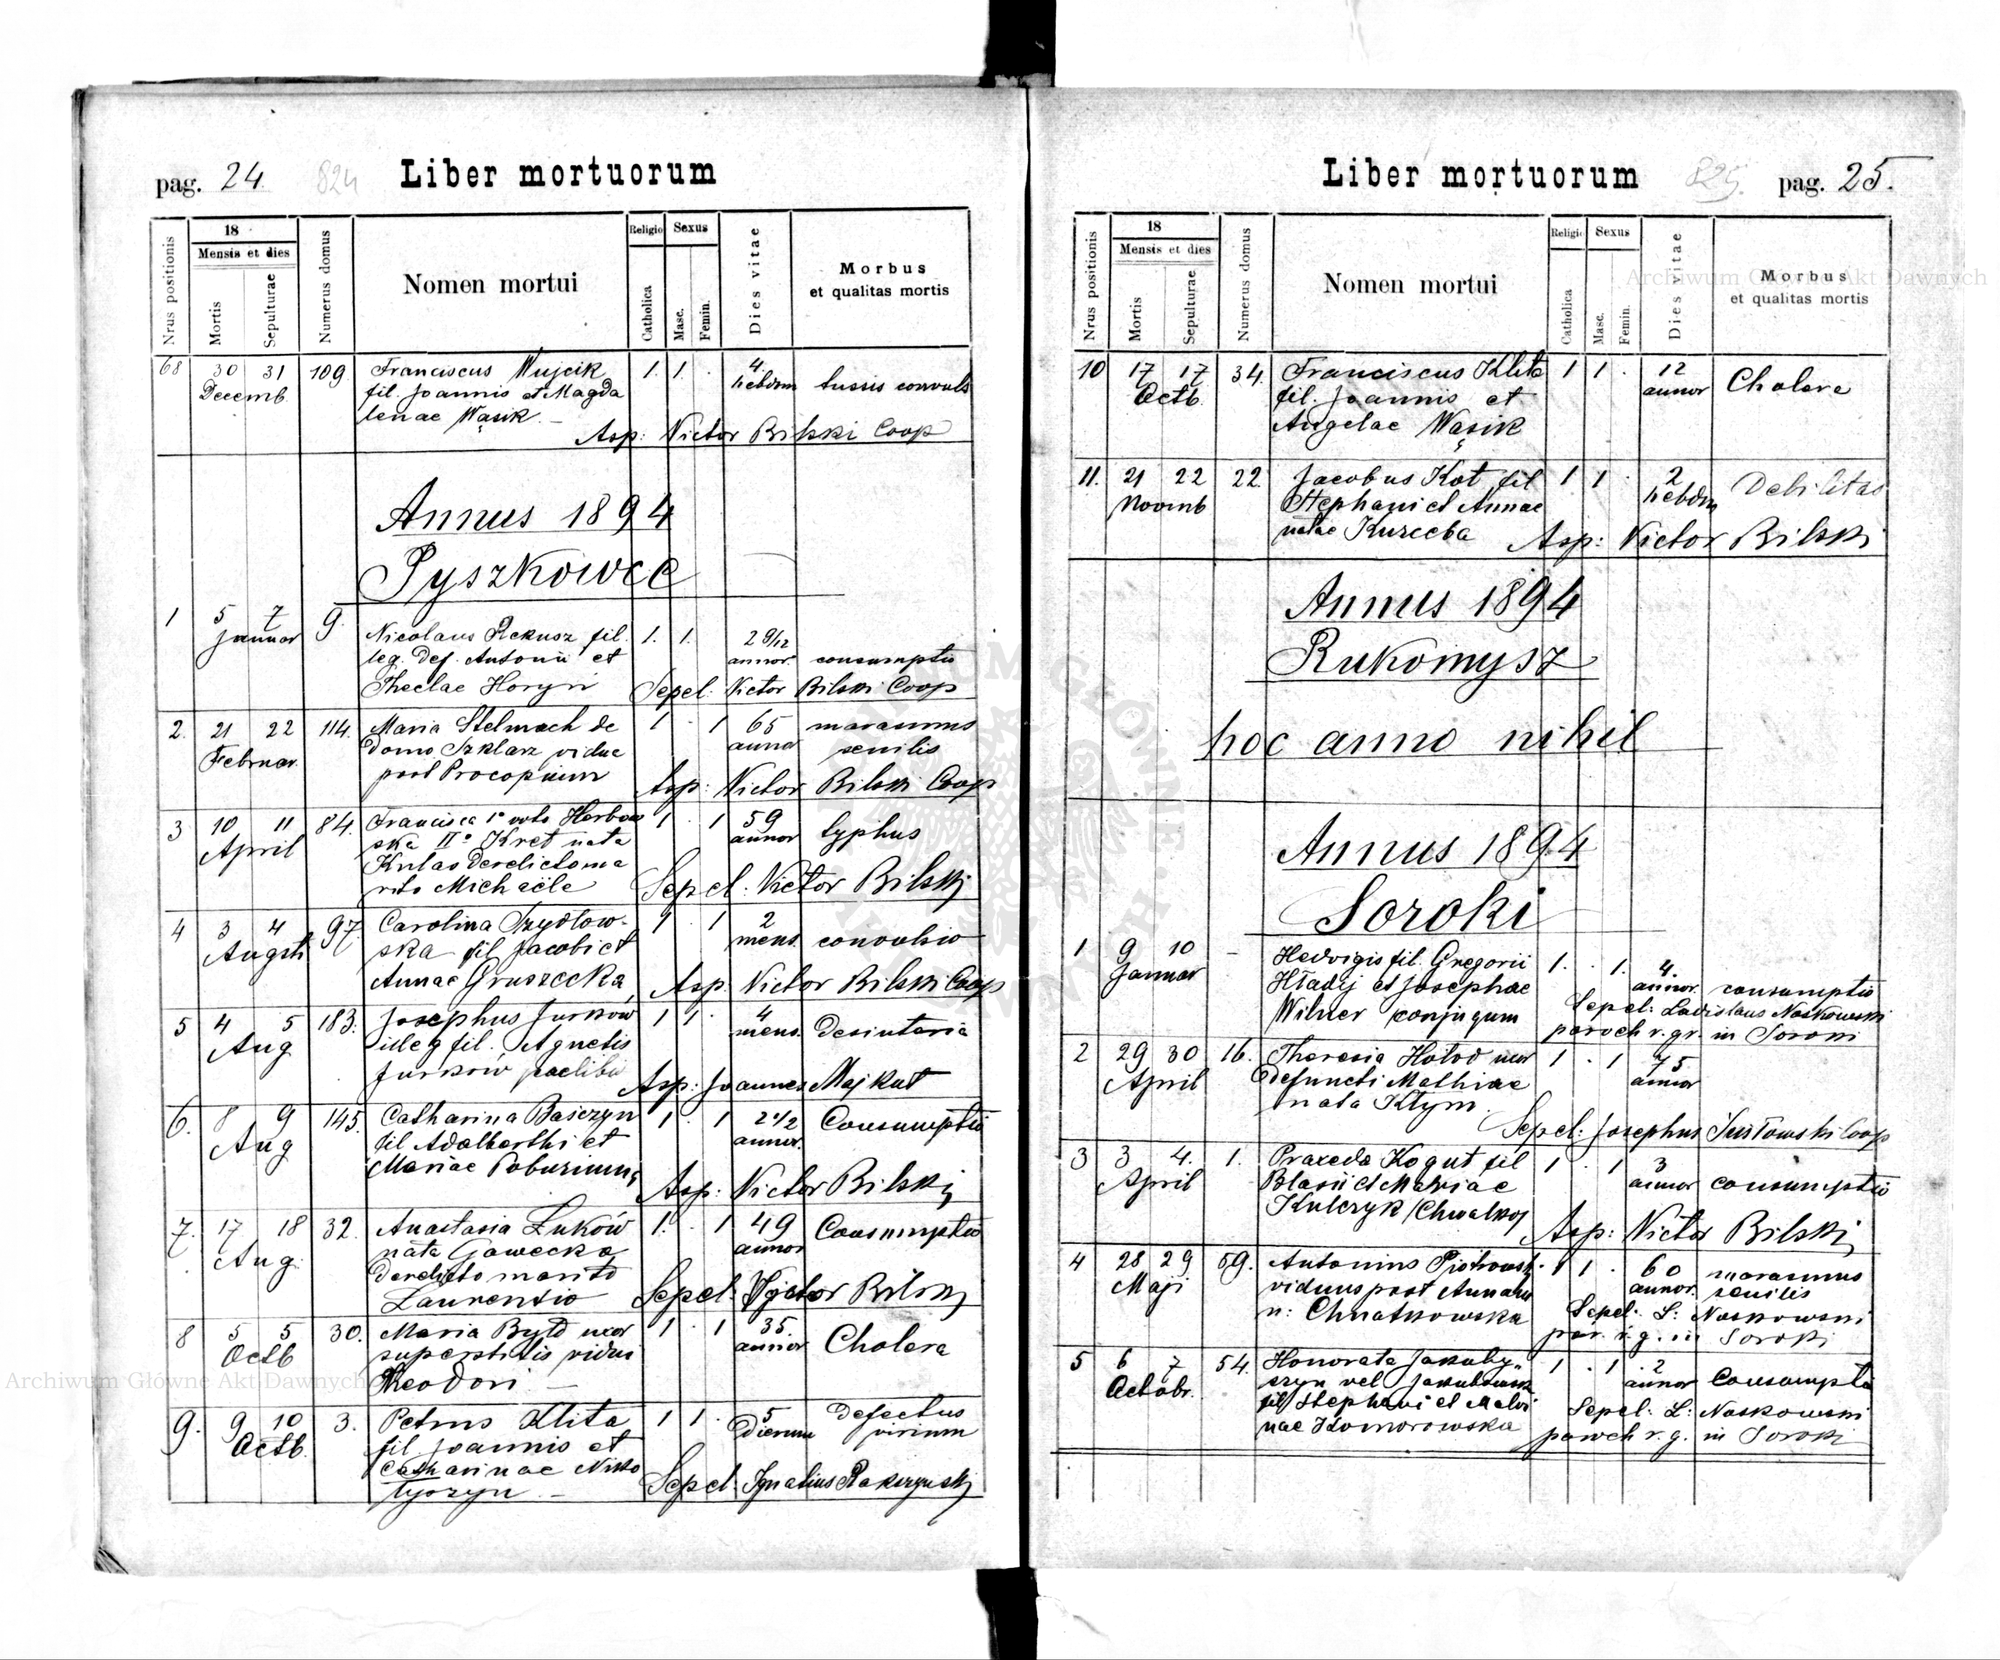 pag. 24. 824 Liber mortuorum
Nrus positionis
18
Mensis et dies
Mortis
Sepulturae
Numerus domus
Nomen mortui
Religio
Catholica
Sexus
Masc.
Femin.
Dies vitae
Morbus
et qualitas mortis
68 30 31 109 Franciscus Wujcik 1. 1. 4.
Decemb. fil. Joannis et Magda hebdm tussis convuls
lenae Wąsik.
Asp: Victor Bilski Coop
Annus 1894
Pyszkowce
1 5 7 9. Nicolaus Rekusz fil. 1. 1. 2 9/12
Januar leg. def. Antonii et annor. consumptio
Theclae Horyn Sepel: Victor Bilski Coop
2. 21 22 114. Maria Stelmach de 1 1 65 marasmus
Februar. domo Szklarz vidua annor senilis
post Procopium
Asp: Victor Bilski Coop
3 10 11 84. Francisca 1º voto Herbow 1 1 59
April ska IIº Kret nata annor typhus
Kulas derelicto ma
rito Michaële Sepel: Victor Bilski
4 3 4 97. Carolina Szydłow- 1 1 2
Augsti ska fil Jacobi et mens. convulsio
Annae Gruszecka Asp. Victor Bilski Coop
5 4 5 183. Josephus Jurków 1 1 4
Aug illeg fil. Agnetis mens. desintaria
Jurków caelibis Asp: Joannes Majkut
6. 8 9 145. Catharina 1 1 2 1/2 Consumptio
Aug fil Adalberthi et annor.
Mariae
Asp: Victor Bilski
7. 17 18 32. Anastasia Łuków 1. 1 49 Consumptio
Aug. nata Gawecka annor
derelicto marito
Laurentio Sepel: Victor Bilski
8 5 5 30. Maria Bytd uxor 1 1 35.
Octb superstitis vidui annor Cholera
Theodori
9. 9 10 3. Petrus Klita 1 1 5 defectus
Octb. fil. Joannis et dierum virium
Catharinae
Sepel: Ignatius
Liber mortuorum 825. pag. 25.
Nrus positionis
18
Mensis et dies
Mortis
Sepulturae
Numerus domus
Nomen mortui
Religio
Catholica
Sexus
Masc.
Femin.
Dies vitae
Morbus
et qualitas mortis
10 17 17 34. Franciscus Klita 1 1 12
Octb. fil. Joannis et annor Cholera
Angelae Wąsik
11. 21 22 22. Jacobus Kot fil 1 1 2 Debilitas
Novmb Stephani et Annae hebdm
natae Kurzeba Asp: Victor Bilski
Annus 1894
Rukomysz
hoc anno nihil
Annus 1894
Soroki
1 9 10 - Hedvigis fil. Gregorii 1. 1. 4.
Januar Hładij et Josephae annor. consumptio
Wilner conjugum Sepel: Ladislaus Noskowski
paroch r. gr. in Soroki
2 29 30 16. Theresia Hołod uxor 1 1 75
April defuncti Mathiae annor
nata Kłym.
Sepel: Josephus Coop
3 3 4. 1. Praxeda Kogut fil 1 1 3
April Blasii et Mariae annor consumptio
Kulczyk / Chwalkoj
Asp: Victor Bilski
4 28 29 69. Antonius Piotrowski 1 1 60 marasmus
Maji viduus post Annam annor. senilis
n: Chnatkowska Sepel: L: Noskowski
par. r. g. in Soroki
5 6 7 54. Honorata Jakuby- 1 1 2
Octobr. szyn vel Jakubowsk annor Consumptio
fil Stephani et Malvi Sepel: L: Noskowski
nae Komorowska paroch r. g. in Soroki
Archiwum Główne Akt Dawnych
Archiwum Główne Akt Dawnych